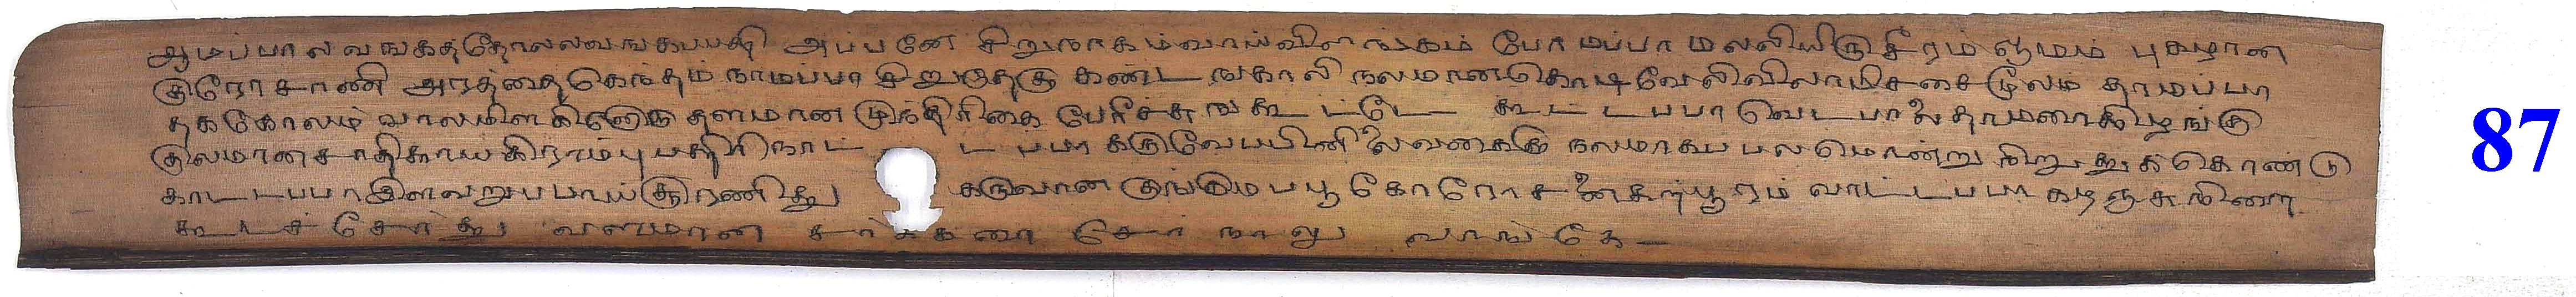 ஆமப்பாலவங்கத்தோலலவங்கபபததி அப்பனே சிறுநாகம்வாய்விளஙகம் போமப்பா மலலியிருசீரம் ஓமம் புகழான
குரோசாணி அரத்தைகெந்தம் நாமப்பா சிறுகுதகு கண்டஙகாலி நலமானகொடிவேலிவிலாமிசசைமூலம் தாமப்பா
தககோலம் வாலமிள தளமான முந்திரிகை பேரீச்சஙகூட்டே கூட்டபபா வெடபாலைதாமணககிழங்கு
குலமானசாதிகாயகிராமபுபததிரி நாட்டபபா கருவேபபிணிலைவகைகு நலமாகபபலமொன்று நிறுதுககொண்டு
காடடபபாஇளவறுபபாய்சூரணிதது கருவான குங்குமபபூ கோரோசனைகற்பூரம் வாட்டபபா
கூடச்சேர்தது வளமான சர்ககரை சேர்நாலு வாஙகே